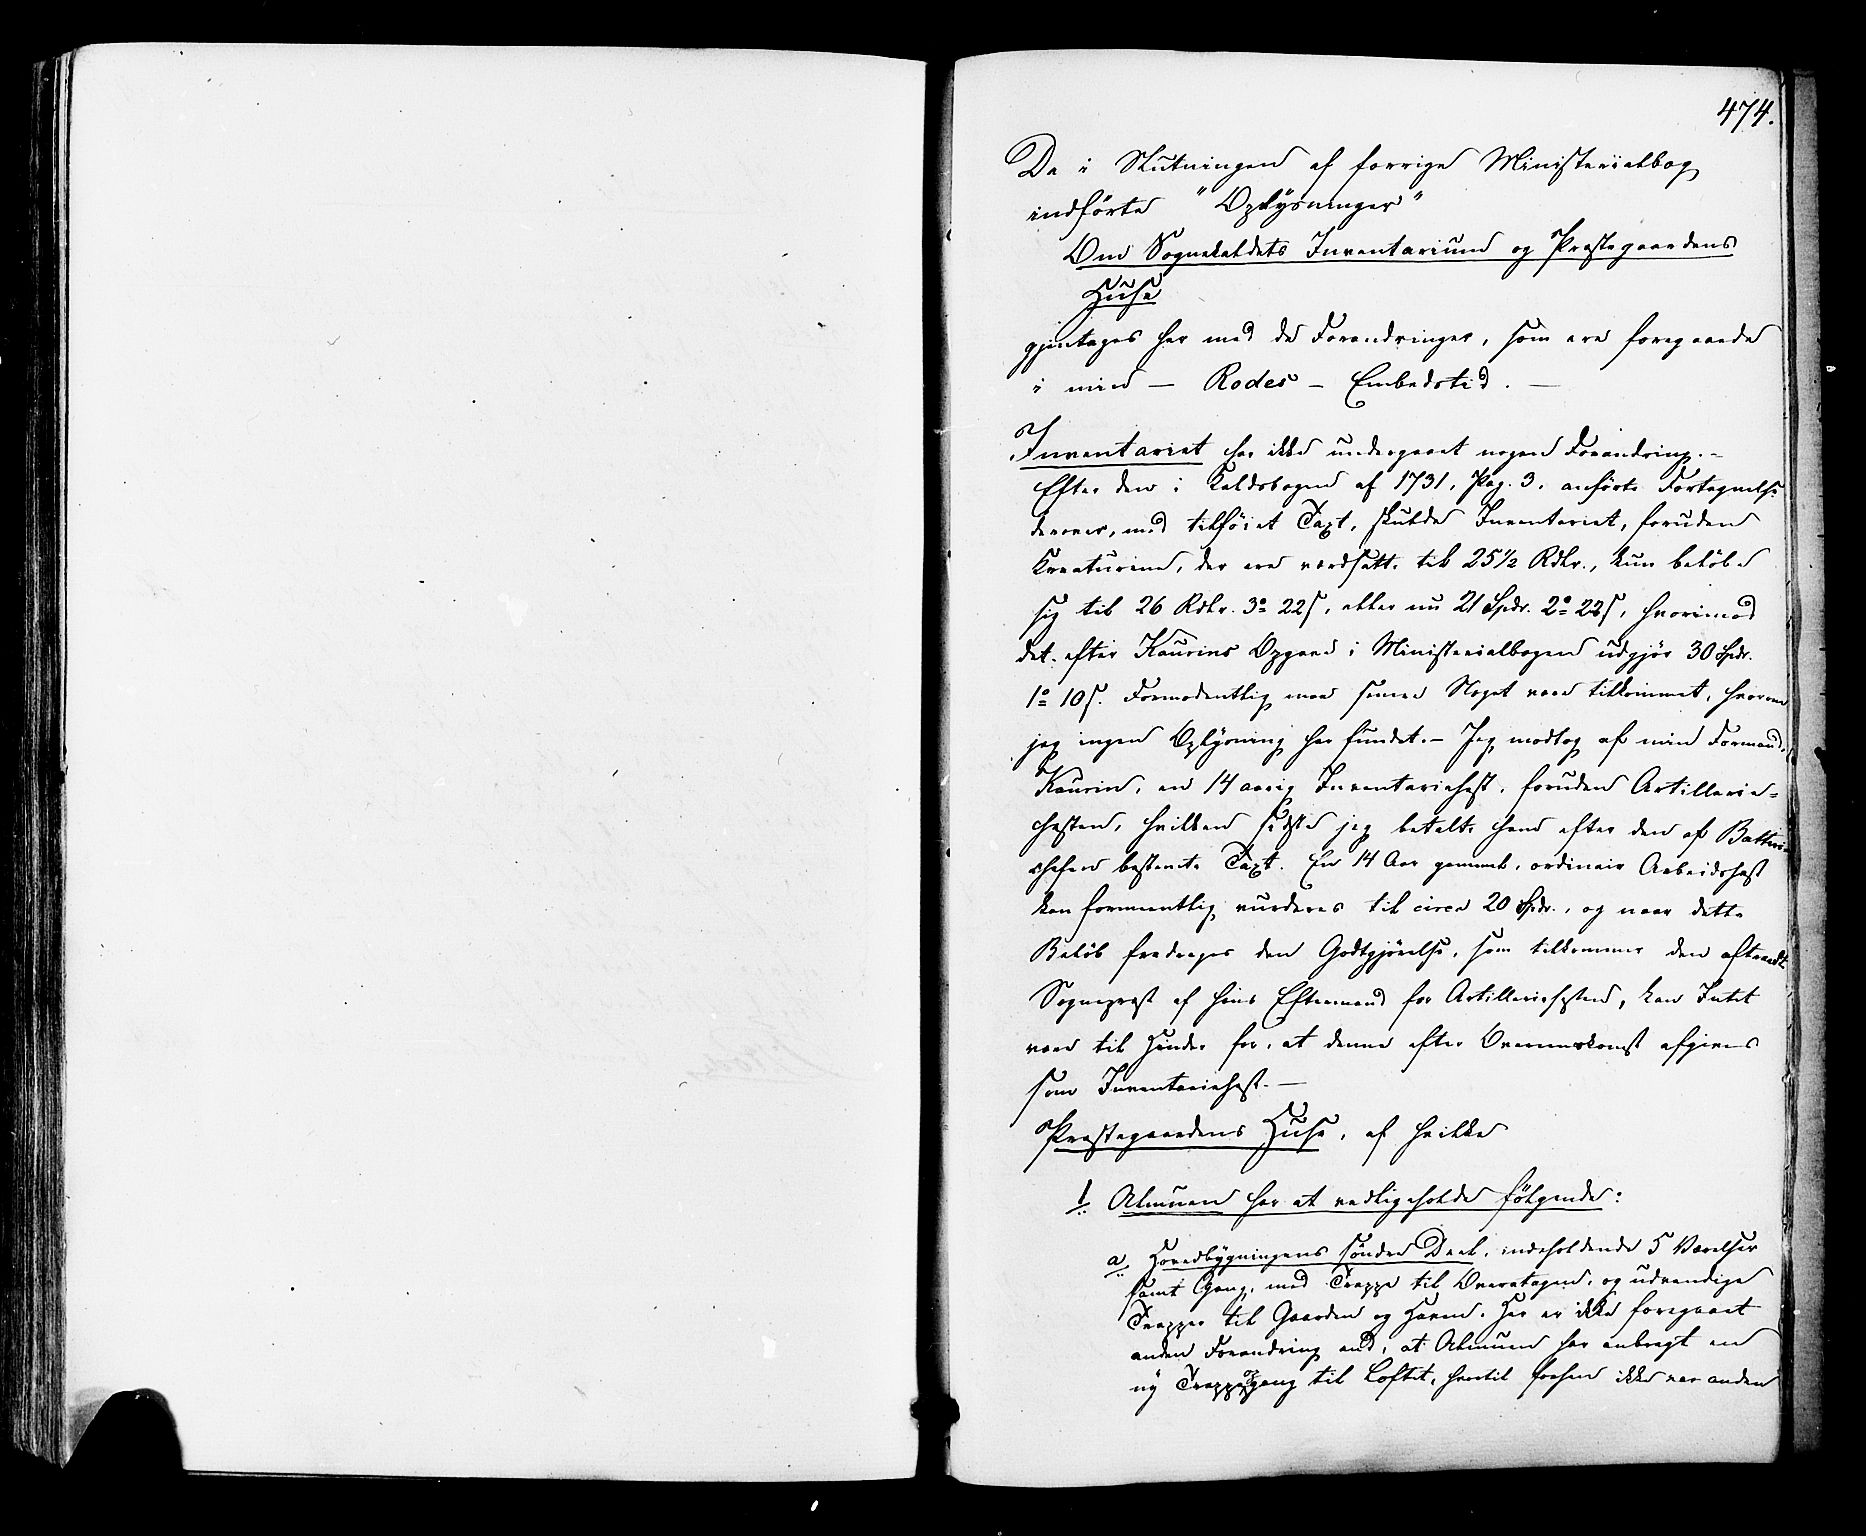 474.
De i Slutningen af forrige Ministerialbog
indførte "Oplysninger"
Om Sognekaldets Inventarium og Præstegaardens
Huse
gjentages her med de Forandringer, som ere foregaaede
i min — Rodes — Embedstid. —
Inventariet har ikke undergaaet nogen Forandring. —
Efter den i Kaldsbogen af 1731, Pag. 3, anførte Fortegnelse
derover, med tilføiet Taxt, skulde Inventariet, foruden
Kreaturene, der ere værdsatte til 25½ Rdlr., kun beløbe
sig til 26 Rdlr. 3 o 22 s, eller nu 21 Spdr. 2 o 22 s, hvorimod
det efter Kaurins Opgave i Ministerialbogen udgjør 30 Spdr.
1 o 10 s. Formodentlig maa senere Noget være tilkommet, hvorom
jeg ingen Oplysning har fundet. — Jeg modtog af min Formand,
Kaurin, en 14 aarig Inventariehest, foruden Artillerie-
hesten, hvilken sidste jeg betalte ham efter den af Batterie-
chefen bestemte Taxt. En 14 Aar gammel, ordinair Arbeidshest
kan formeentlig vurderes til circa 20 Spdr., og naar dette
Beløb fradrages den Godtgjørelse, som tilkommer den aftraadte
Sognepræst af hans Eftermand for Artilleriehesten, kan Intet
være til Hinder for, at denne efter Overenskomst afgives
som Inventariehest. —
Præstegaardens Huse, af hvilke
1. Almuen har at vedligeholde følgende:
a. Hovedbygningens søndre Deel, indeholdende 5 Værelser
samt Gang, med Trappe til Overetagen, og udvendige
Trapper til Gaarden og Haven. Her er ikke foregaaet
anden Forandring end, at Almuen har anbragt en
ny Trappeopgang til Loftet, hvortil forhen ikke var anden